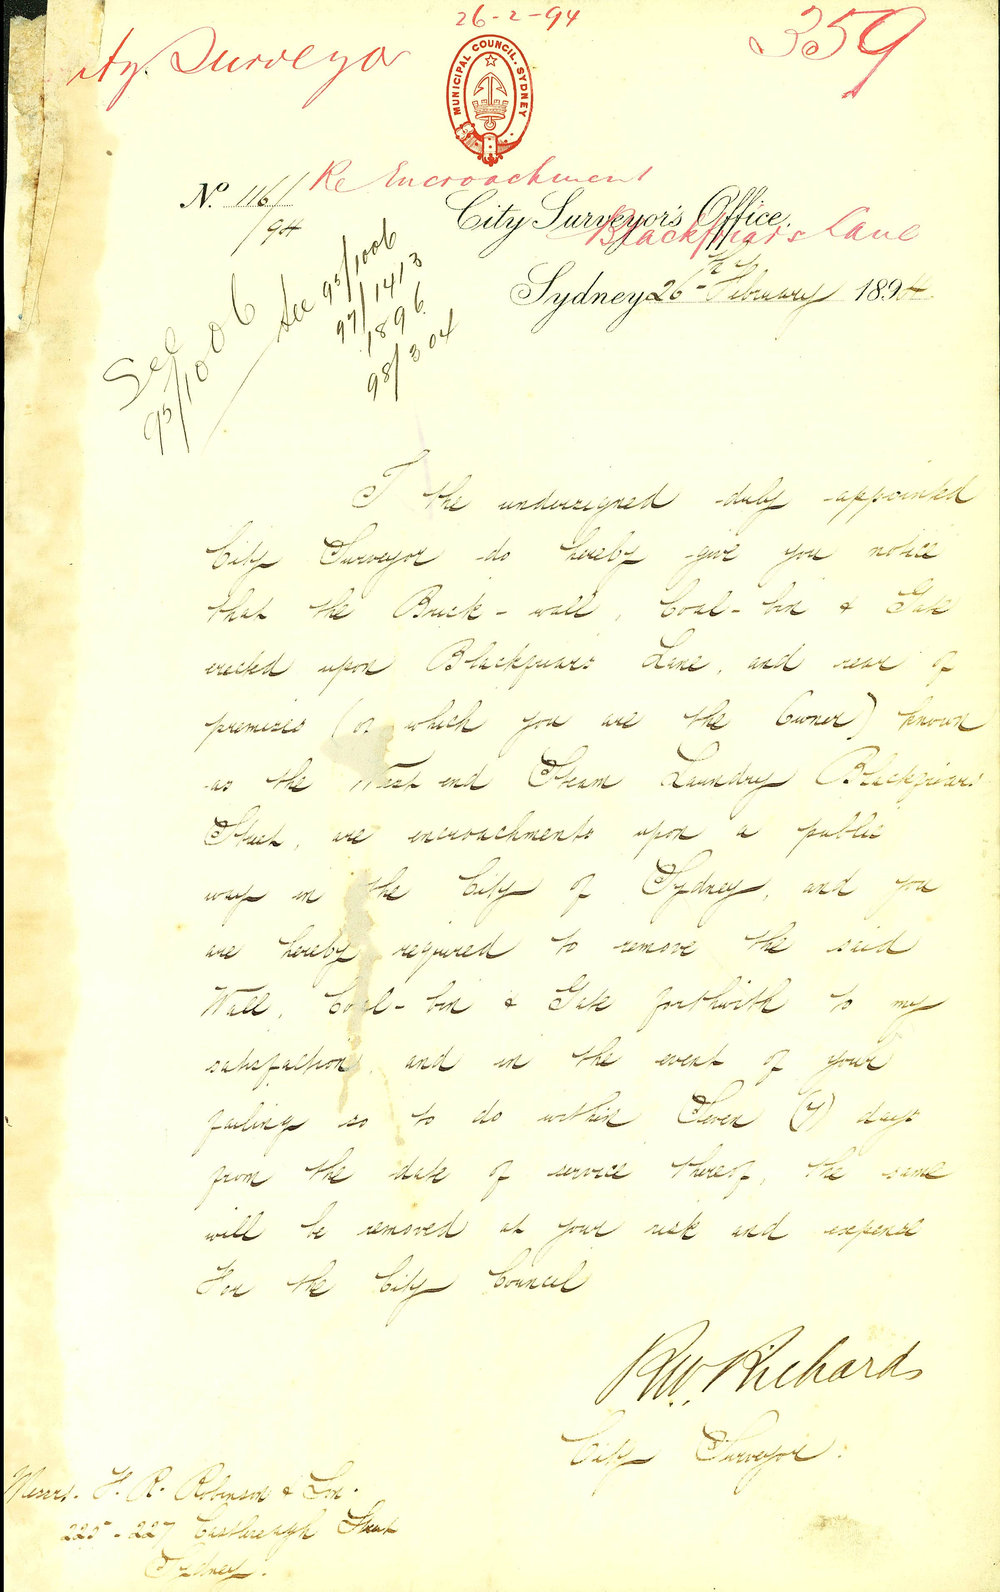 26-2-94
359
Cty. Surveyor
MUNICIPAL COUNCIL. SYDNEY
Re Encroachment
Blackfriars Lane
No. 116/
/94
City Surveyor's Office,
Sydney 26th February 1894
See
95/1006
See 95/1006
97/1413
1896
98/304
I the undersigned duly appointed
City Surveyor do hereby give you notice
that the Brick-wall, Coal-bin & Gate
erected upon Blackfriars Lane, and rear of
premises (of which you are the Owner) known
as the West end Steam Laundry Blackfriars
Street, are encroachments upon a public
way in the City of Sydney, and you
are hereby required to remove the said
Wall, Coal-bin & Gate forthwith to my
satisfaction, and in the event of your
failing so to do within Seven (7) days
from the date of service thereof, the same
will be removed at your risk and expense
For the City Council
R.W. Richards
City Surveyor.
Messrs. H. R. Robinson & Son.
225-227 Castlereagh Street
Sydney.